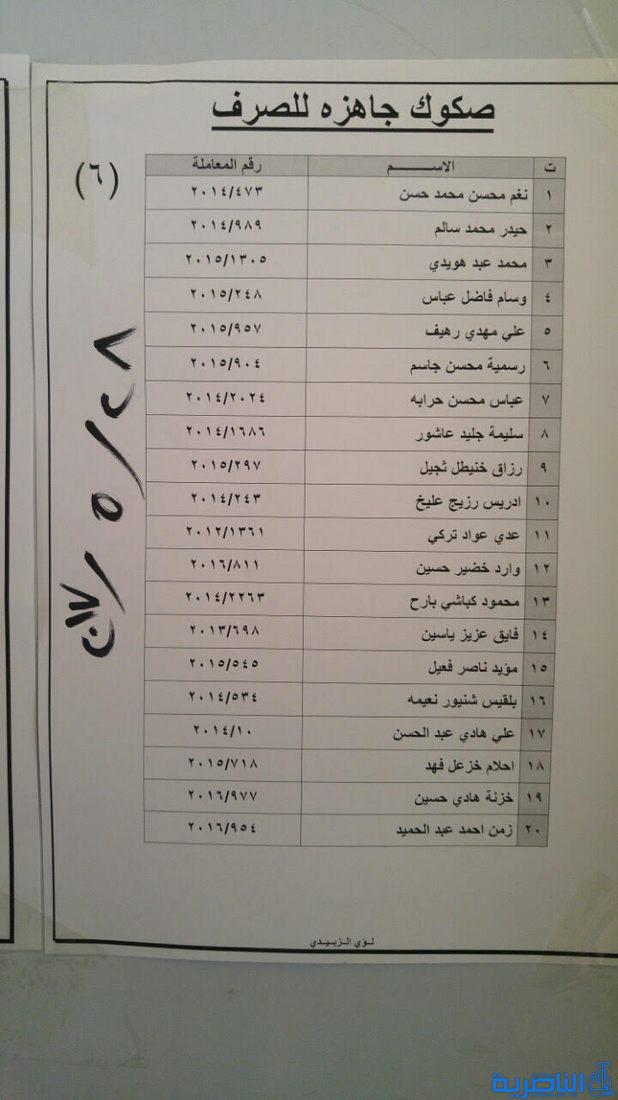 صكوك جاهزه للصرف
(٦)
ت الاســـــم رقم المعاملة
١ نغم محسن محمد حسن ٢٠١٤/٤٧٣
٢ حيدر محمد سالم ٢٠١٤/٩٨٩
٣ محمد عبد هويدي ٢٠١٥/١٣٠٥
٤ وسام فاضل عباس ٢٠١٥/٢٤٨
٥ علي مهدي رهيف ٢٠١٥/٩٥٧
٦ رسمية محسن جاسم ٢٠١٥/٩٠٤
٧ عباس محسن حرابه ٢٠١٤/٢٠٢٤
٨ سليمة جليد عاشور ٢٠١٤/١٦٨٦
٩ رزاق خنيطل ثجيل ٢٠١٥/٢٩٧
١٠ ادريس رزيج عليخ ٢٠١٤/٢٤٣
١١ عدي عواد تركي ٢٠١٢/١٣٦١
١٢ وارد خضير حسين ٢٠١٦/٨١١
١٣ محمود كباشي بارح ٢٠١٤/٢٢٦٣
١٤ فايق عزيز ياسين ٢٠١٣/٦٩٨
١٥ مؤيد ناصر فعيل ٢٠١٥/٥٤٥
١٦ بلقيس شنيور نعيمه ٢٠١٤/٥٣٤
١٧ علي هادي عبد الحسن ٢٠١٤/١٠
١٨ احلام خزعل فهد ٢٠١٥/٧١٨
١٩ خزنة هادي حسين ٢٠١٦/٩٧٧
٢٠ زمن احمد عبد الحميد ٢٠١٦/٩٥٤
لـؤي الـزبـيـدي
الناصرية